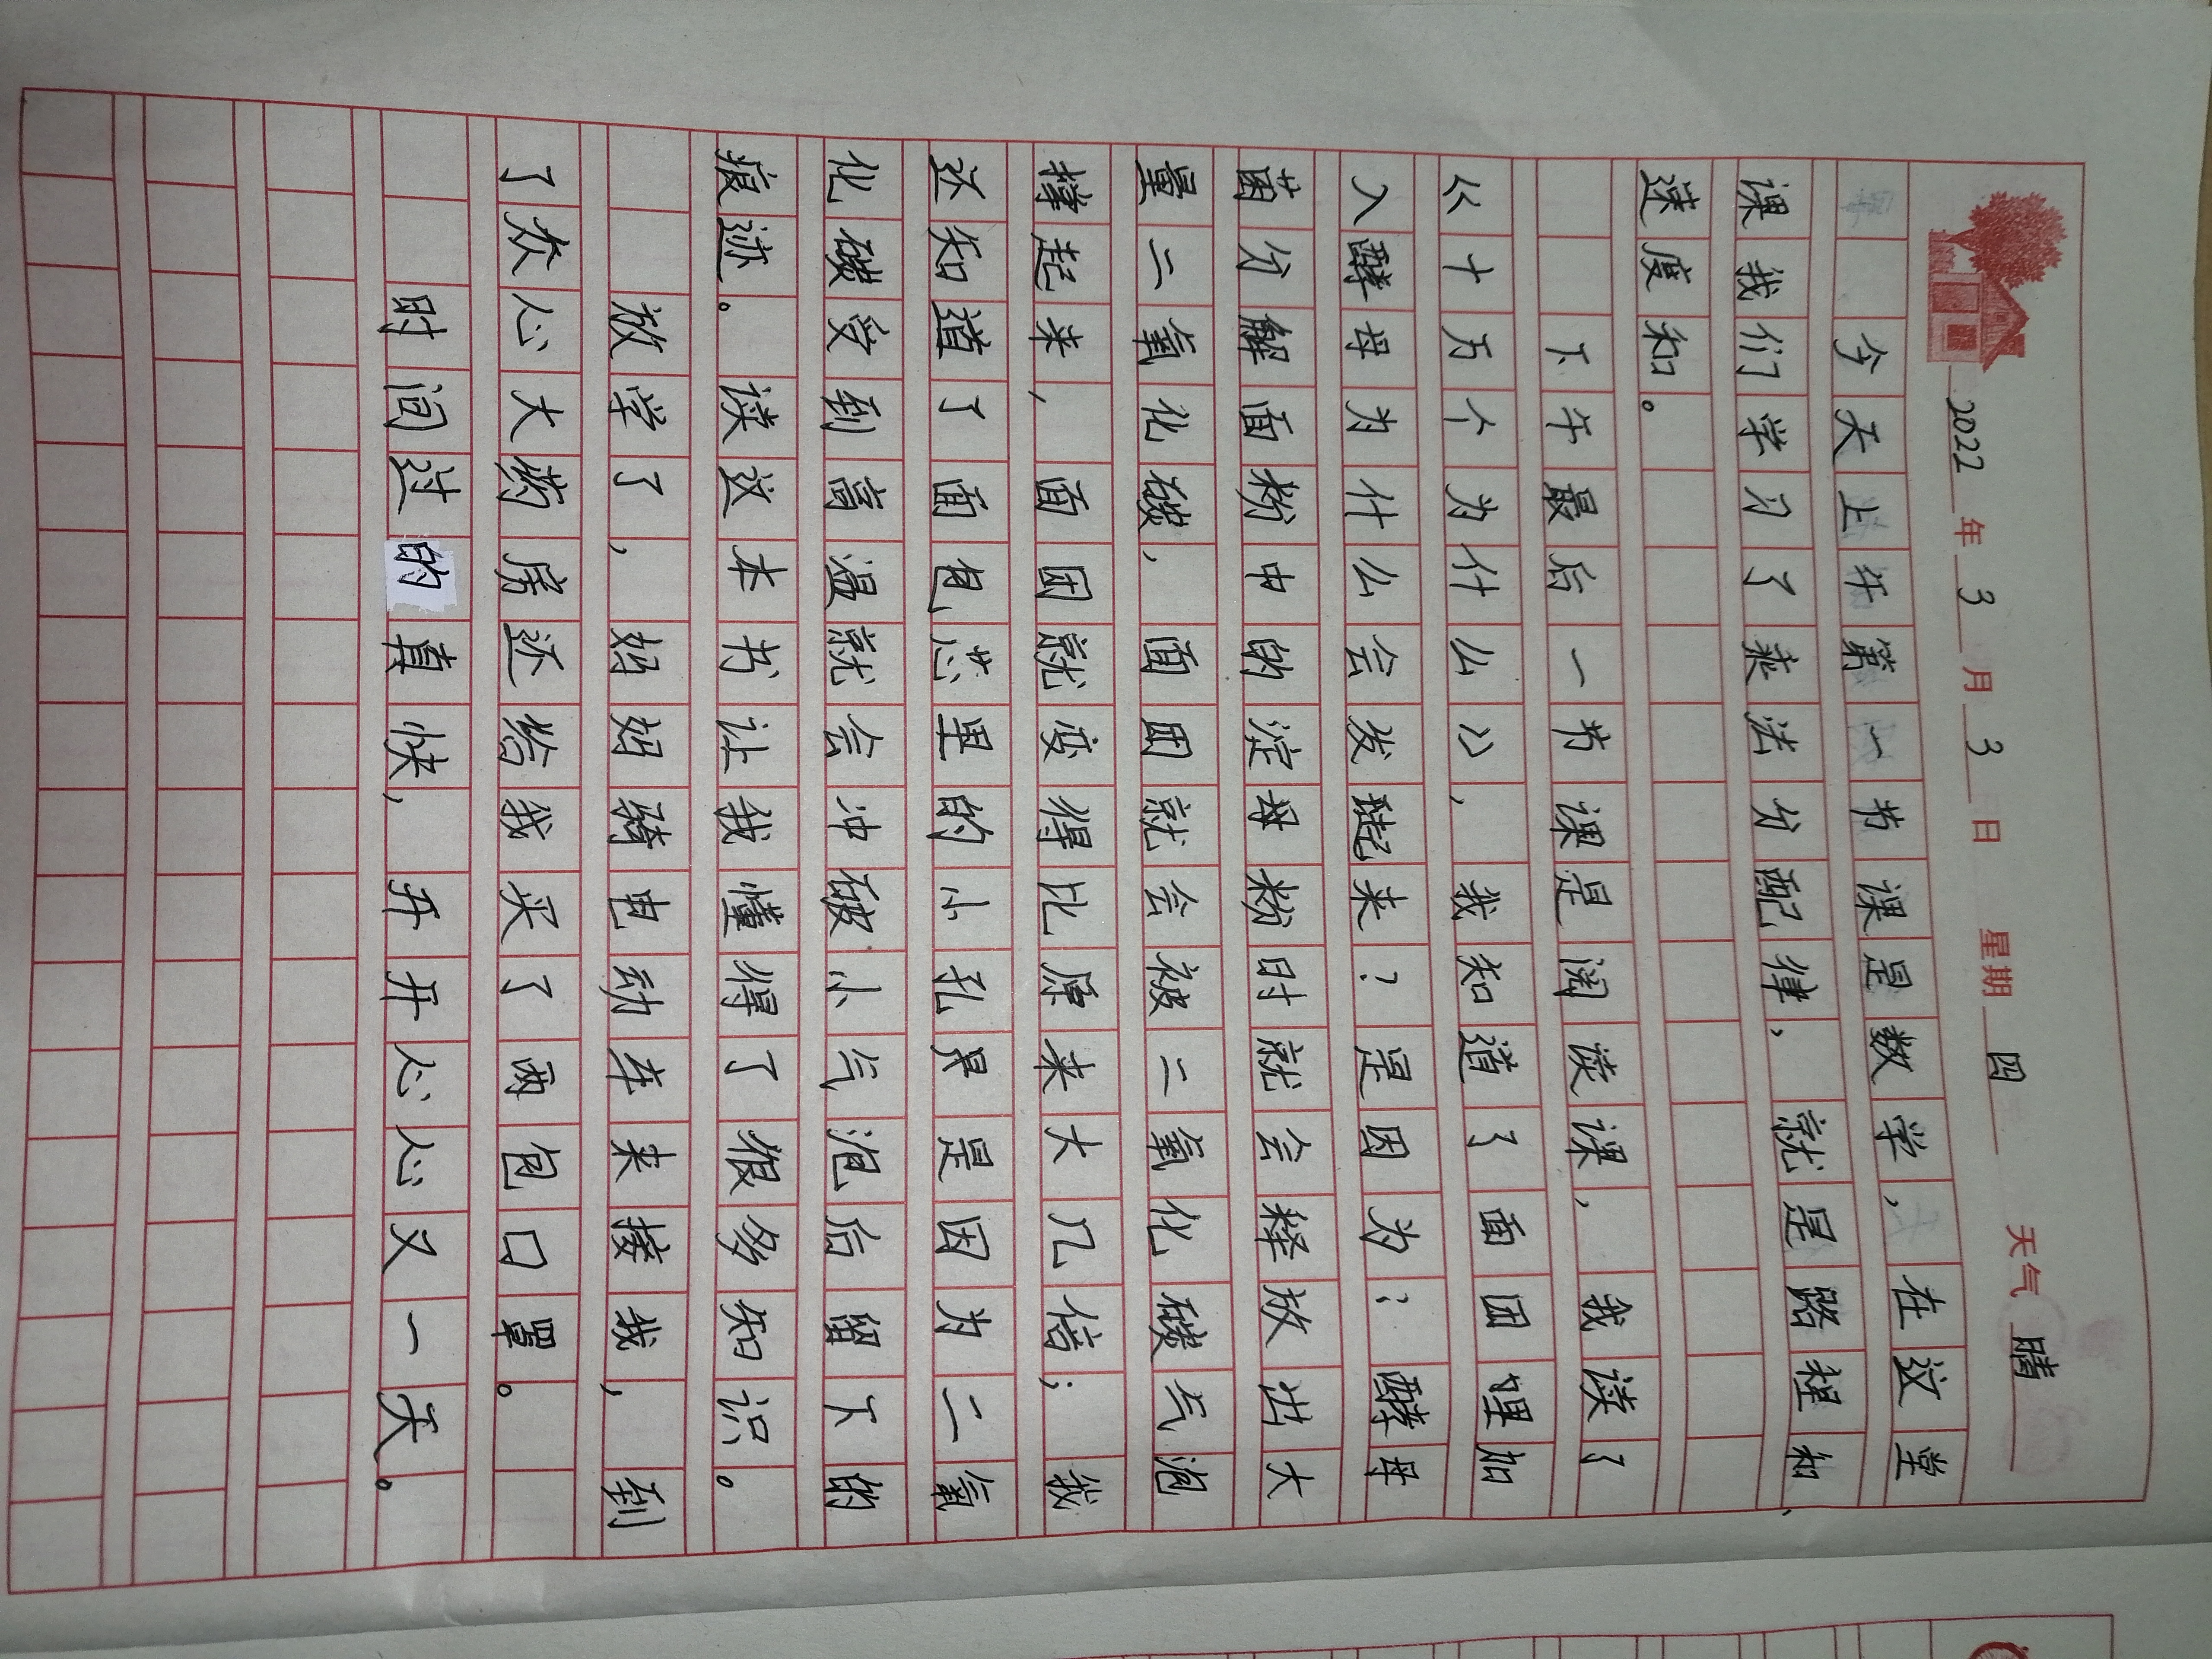 2022年3月3日 星期四 天气 晴
今天上午第一节课是数学，在这堂
课我们学习了乘法分配律，就是路程和、
速度和。
下午最后一节课是阅读课，我读了
《十万个为什么》，我知道了面团里加
入酵母为什么会发起来？是因为：酵母
菌分解面粉中的淀粉时就会释放出大
量二氧化碳，面团就会被二氧化碳气泡
撑起来，面团就变得比原来大几倍；我
还知道了面包芯里的小孔是因为二氧
化碳受到高温就会冲破小气泡后留下的
痕迹。读这本书让我懂得了很多知识。
放学了，妈妈骑电动车来接我，到
了众心大药房还给我买了两包口罩。
时间过的真快，开开心心又一天。